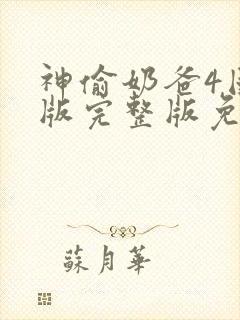 神偷奶爸4
版完整版免
蘇月華